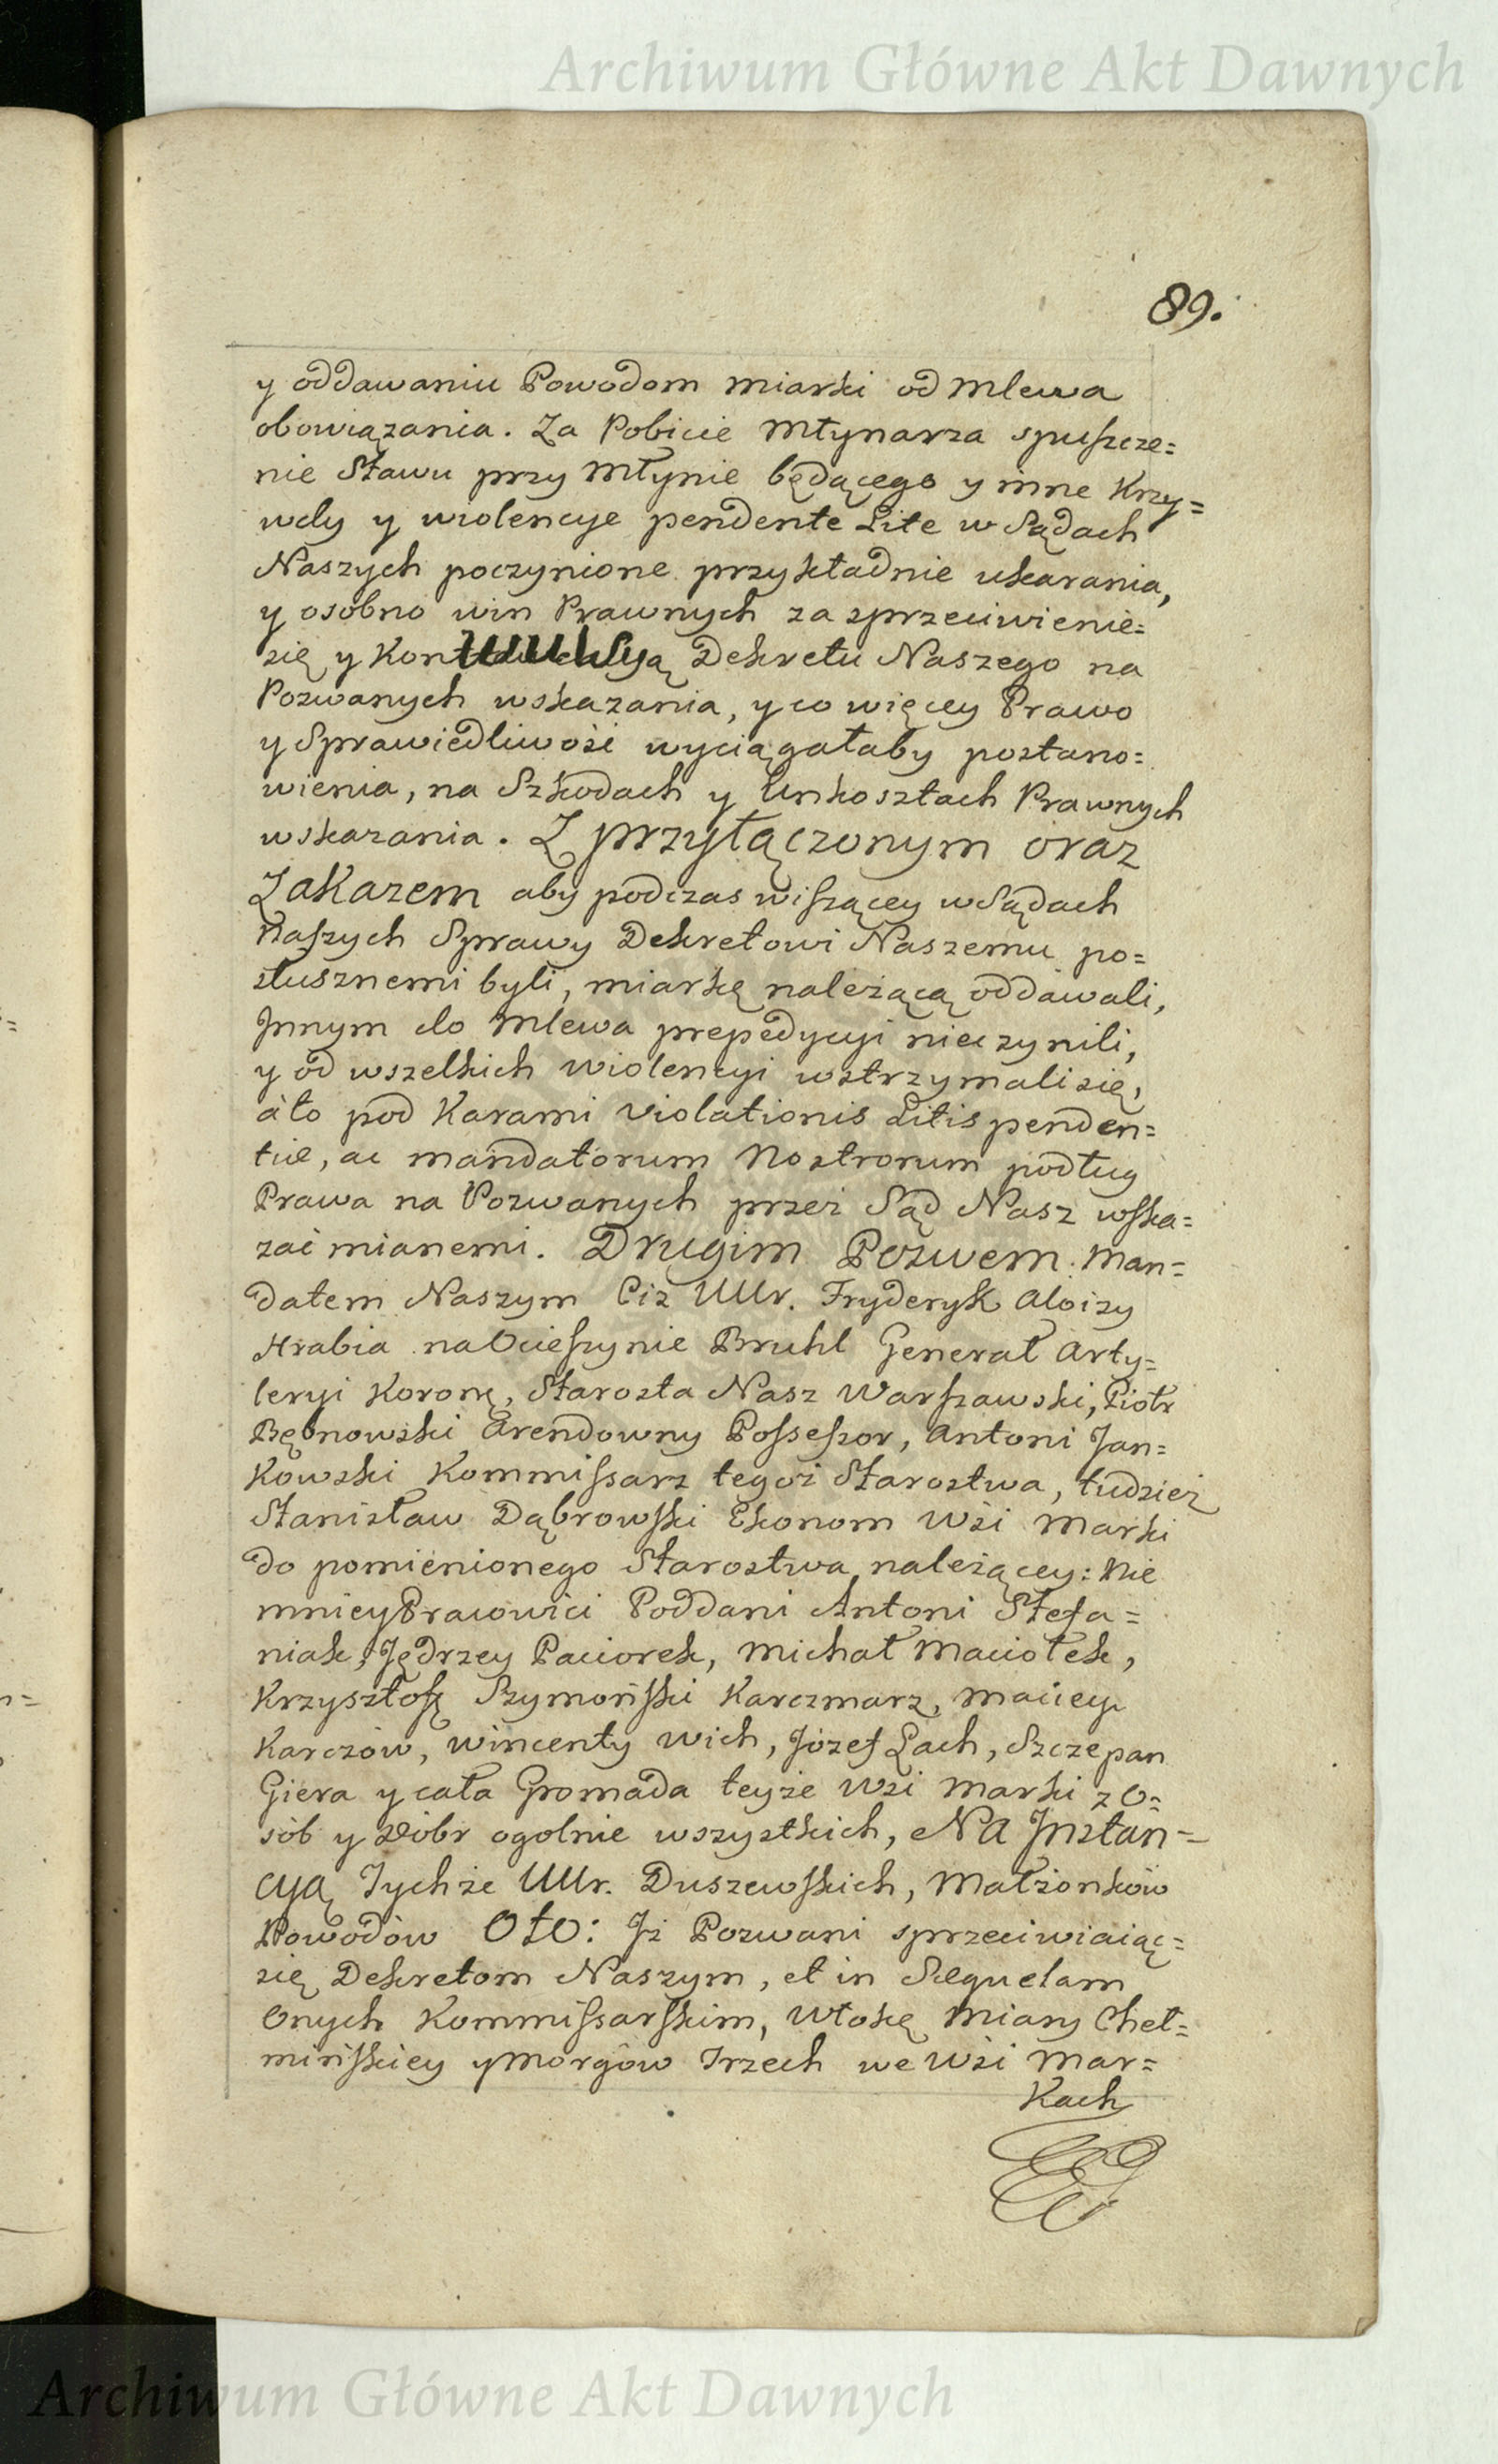 Archiwum Główne Akt Dawnych
89.
y oddawaniu Powodom miarki od Mlewa
obowiązania. Za Pobicie Młynarza spuszcze=
nie Stawu przy Młynie będącego y inne Krzy=
wdy y wiolencye pendente Lite w Sądach
Naszych poczynione przykładnie ukarania,
y osobno win Prawnych za sprzeciwienie=
się y Dekretu Naszego na
Pozwanych wskazania, y co więcey Prawo
y Sprawiedliwość wyciągałaby postano=
wienia, na Szkodach y Unkosztach Prawnych
wskazania. Z przyłączonym oraz
Zakazem aby podczas wiszącey w Sądach
Naszych Sprawy Dekretowi Naszemu po=
słusznemi byli, miarkę należącą oddawali,
Jnnym do Mlewa prepedycyi nieczynili,
y od wszelkich wiolencyi wstrzymali się,
á to pod Karami violationis Litis penden=
tiæ, ac mandatorum Nostrorum podług
Prawa na Pozwanych przez Sąd Nasz wska=
zać mianemi. Drugim Pozwem Man=
datem Naszym Ciż Ur. Fryderyk Aloizy
Hrabia na Ocieszynie Bruhl Generał Arty=
leryi Koronę, Starosta Nasz Warszawski, Piotr
Bębnowski Arendowny Possessor, Antoni Jan=
kowski Kommissarz tegoż Starostwa, tudzież
Stanisław Dąbrowski Ekonom Wśi Marki
do pomienionego Starostwa należącey: Nie
mniey Pracowici Poddani Antoni Stefa=
niak, Jędrzey Paciorek, Michał Maciołek,
Krzysztof Szymoński Karczmarz, Maciey
Karczów, Wincenty Wich, Józef Lach, Szczepan
Giera y cała Gromada teyże Wśi Marki z O=
sób y Dóbr ogolnie wszystkich, Na Jnstan=
cyą Tychże Ur. Duszewskich, Małżonków
Powodów Oto: Jż Pozwani sprzeciwiaiąc=
się Dekretom Naszym, et in Sequelam
Onych Kommissarskim, Włokę Miary Cheł=
mińskiey y Morgów Trzech we Wśi Mar=
kach
Archiwum Główne Akt Dawnych